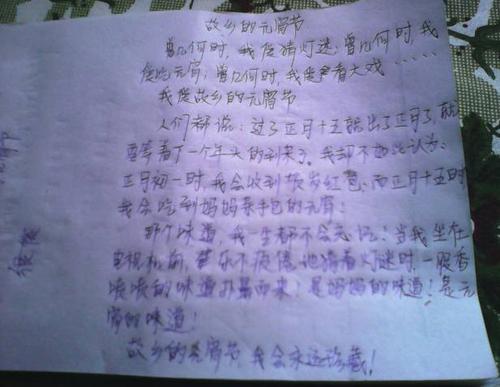 故乡的元宵节
曾几何时,我爱猜灯迷;曾几何时,我
爱吃元宵;曾几何时,我爱看大戏……
我爱故乡的元宵节
人们都说:过了正月十五就出了正月了,就
要等着下一个年头的到来了。我却不如此认为:
正月初一时,我会收到
红包,而正月十五时
我会吃到妈妈亲手包的元宵!
那个味道,我一生都不会忘记!当我坐在
电视机前,
不疲倦地猜着灯谜时,一股香
喷喷的味道扑鼻而来!是妈妈的味道!是元
宵的味道!
故乡的元宵节,我会永远珍藏!